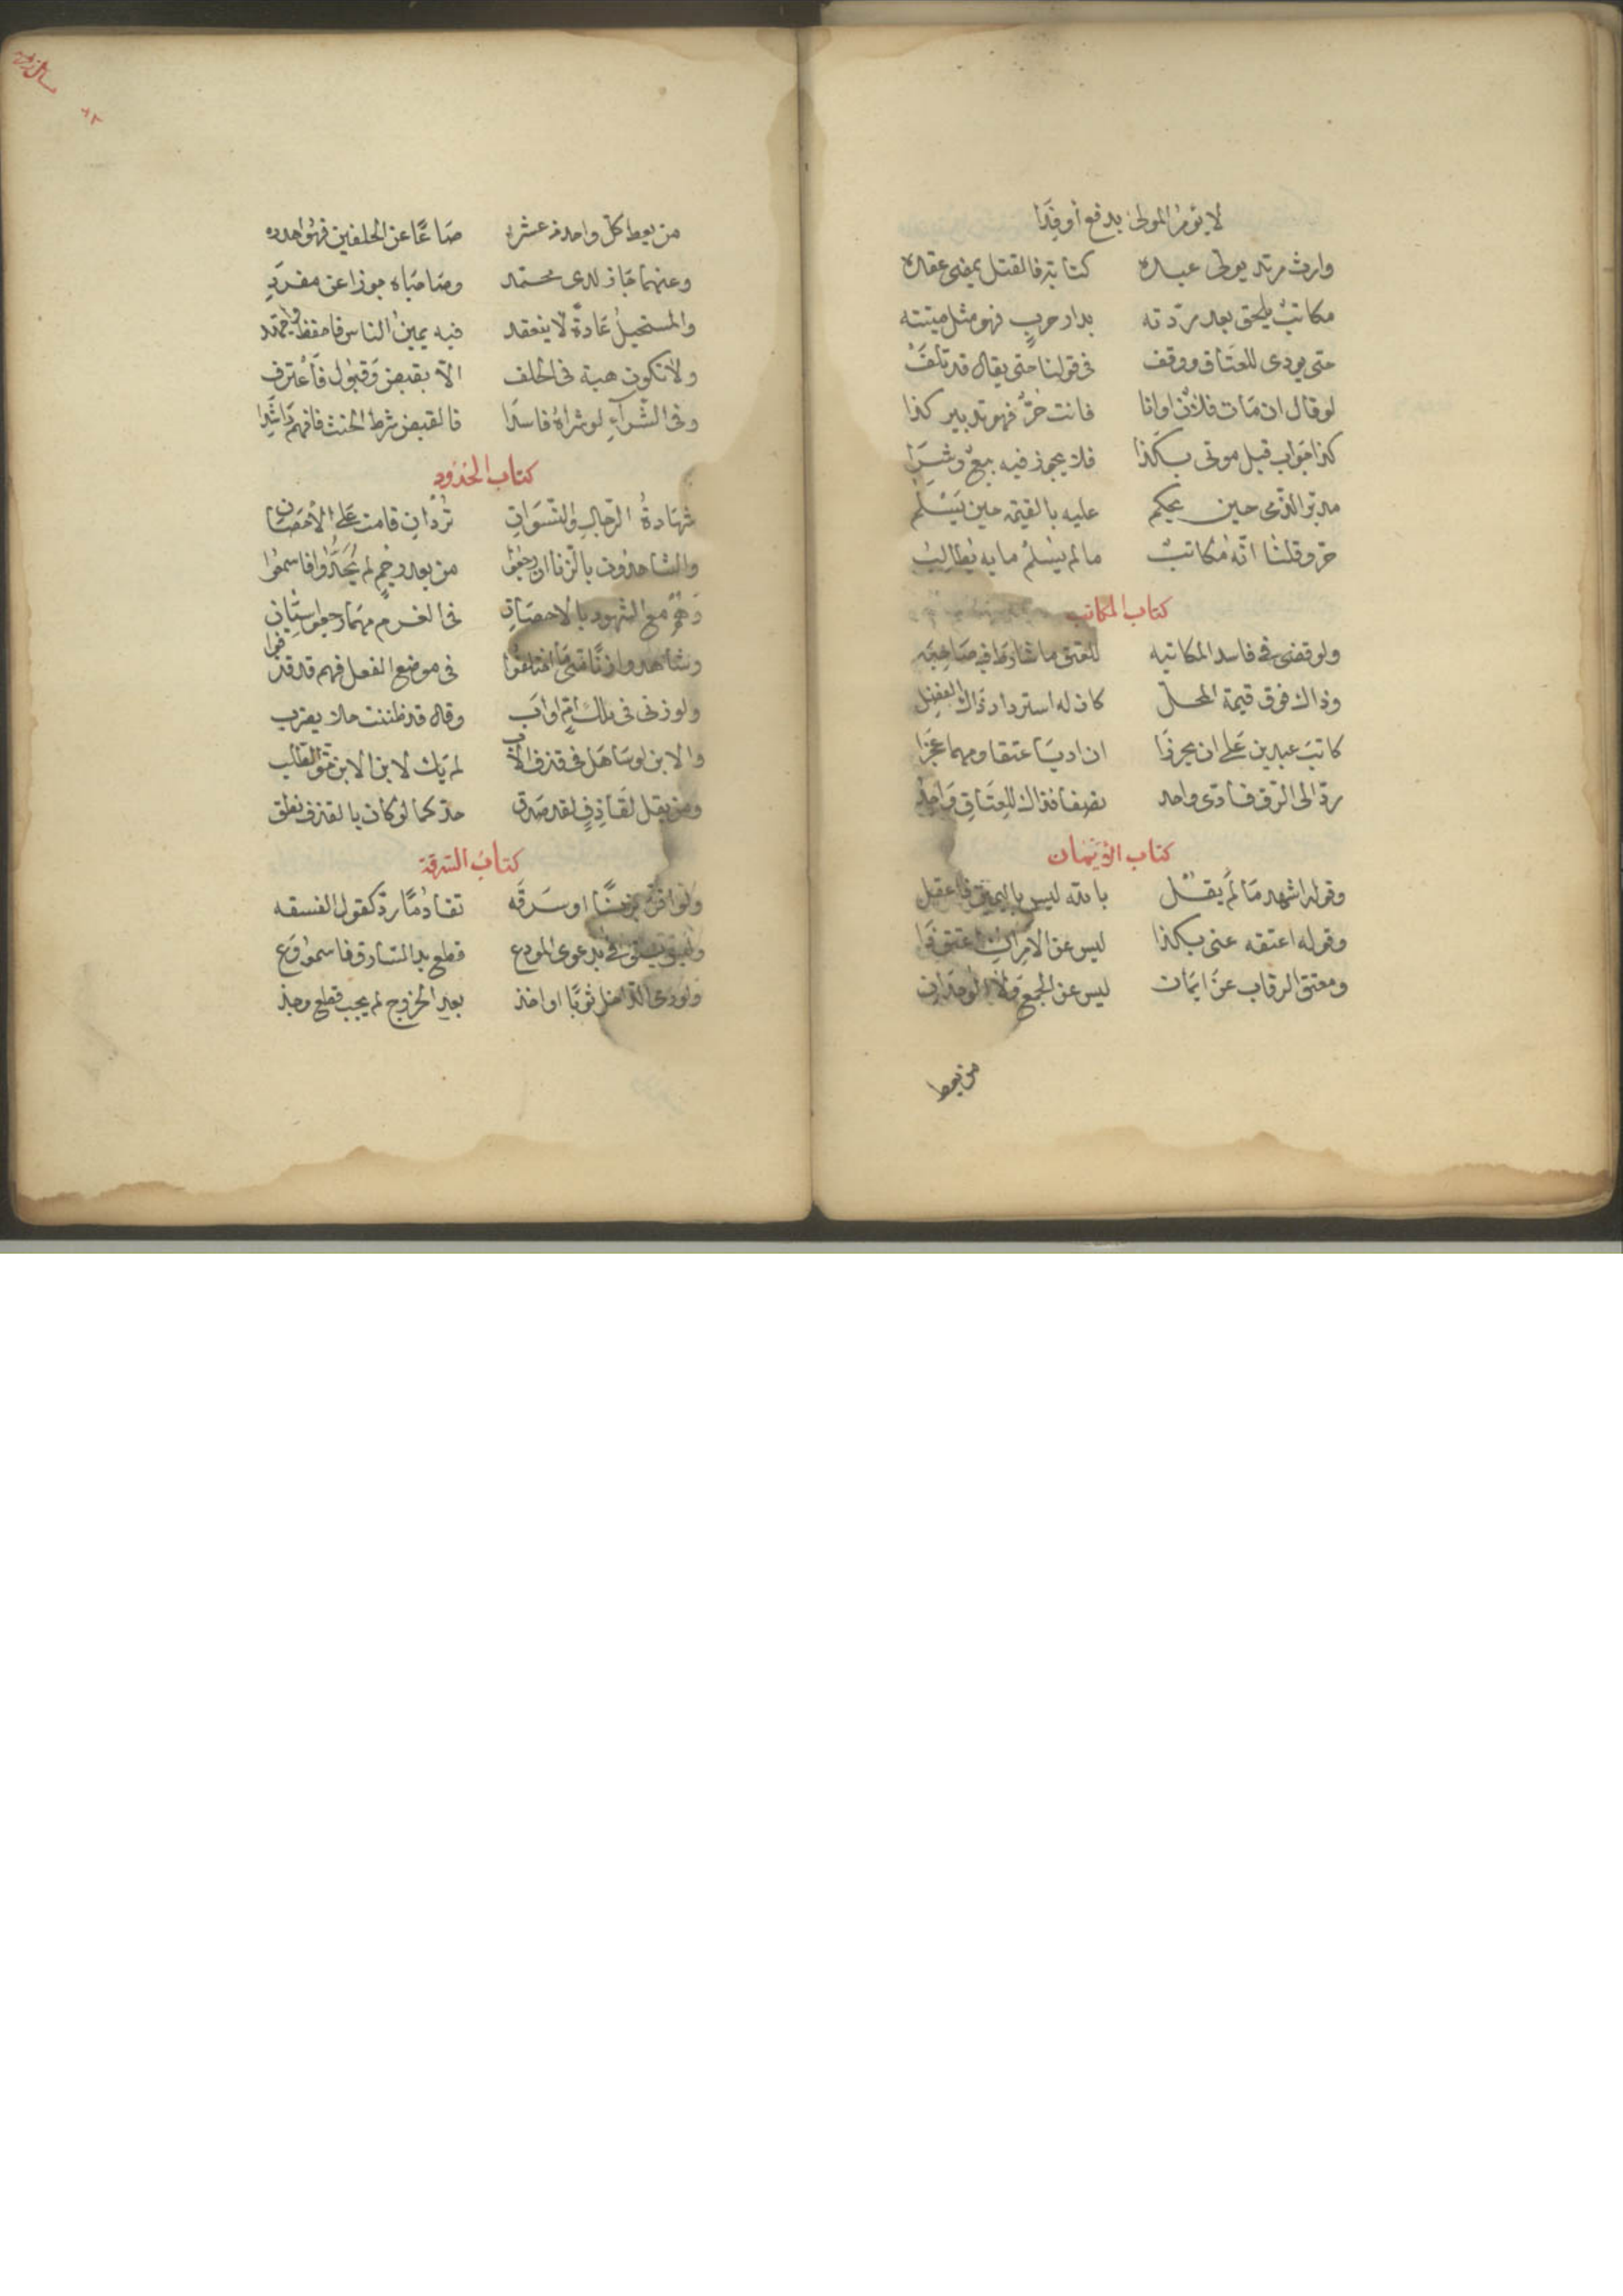 لا يؤمر المولى بدفع أو فدا
وارث مرتد يولى عبده كتابة فالقتل يمضى عقده
مكاتب يلحق بعد ردته بدار حرب فهو مثل ميتته
حتى يودى للعتاق ووقف فى قولنا حتى يقال قد تلف
لو قال ان مات فلان او انا فانت حر فهو تدبير كذا
كذا جواب قبل موتى بكذا فلا يجوز فيه بيع وشرا
مدبر الذمى حين يحكم عليه بالقيمة حين يسلم
حر وقلنا انه مكاتب ما لم يسلم ما به يطالب
كتاب المكاتب
ولو قضى فى فاسد المكاتبه للعتق ما شارط فيه صاحبه
وذاك فوق قيمة المحل كان له استرداد ذاك الفضل
كاتب عبدين على ان يحرزا ان اديا عتقا ومهما عجزا
رد الى الرق فادى واحد نصفا فذاك للعتاق واجد
كتاب الايمان
وقوله اشهد ما لم يقل بالله ليس باليمين فاعقل
وقوله اعتقه عنى بكذا ليس عن الامران اعتق ذا
ومعتق الرقاب عن ايمات ليس عن الجمع ولا الوحدان
من يعط
من يعط كل واحد من عشره صاعا عن الحلفين فهو احدده
وعنهما جاز لدى محمد وصاحباه جوزا عن مفرد
والمستحيل عادة لا ينعقد فيه يمين الناس فاحفظ واجتهد
ولا تكون هبة فى الحلف الا بقبض وقبول فاعترف
وفى الشراء لو شراه فاسدا فالقبض شرط الحنث فافهم راشدا
كتاب الحدود
شهادة الرجال والنسوان تردان قامت على الاحصان
والشاهدون بالزنا ان رجعوا من بعد رجم لم يحدوا فاسمعوا
وهم مع الشهود بالاحصان فى الغرم مهما رجعوا سيان
وشاهدوا زنا متى ما اختلفوا فى موضع الفعل فهم قد قذفوا
ولو زنى فى ملك ام او اب وقال قد ظننت حلا يضرب
والابن لو ساهل فى قذف الاب لم يك لابن الابن حق الطلب
ومن يقل لقاذف لقد صدق حد كما لو كان بالقذف نطق
كتاب السرقة
ولو اقر بزنا او سرقه تقادما رد كقول الفسقه
قطع يد السارق فاسمعوا وع
ولو رمى الداخل ثوبا او اخذ بعد الخروج لم يجب قطع وجذ